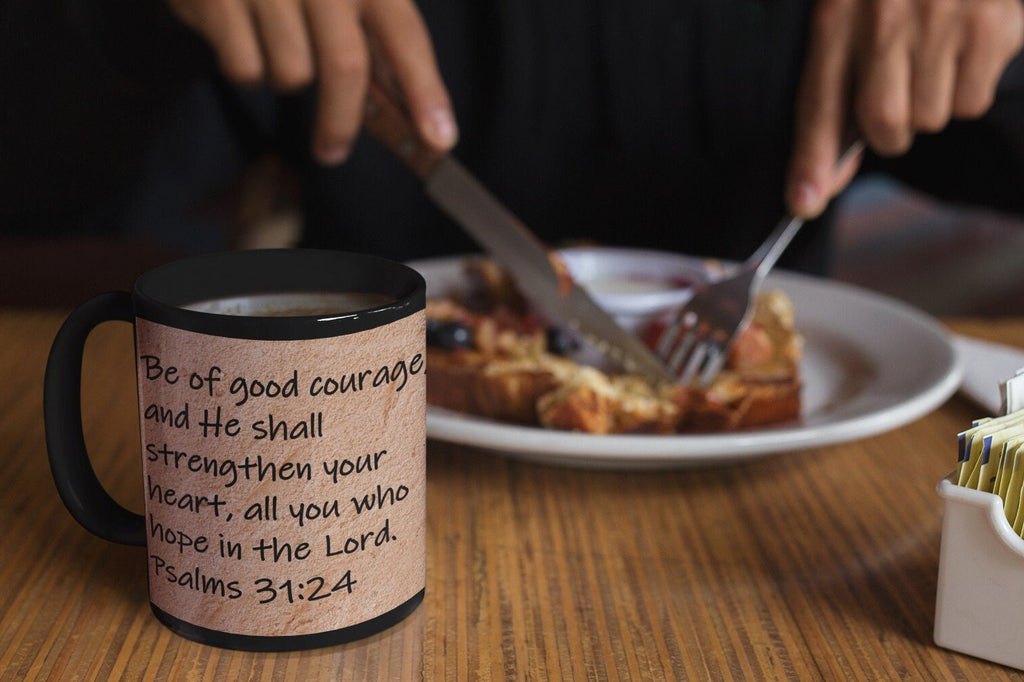 Be of good courage,
and He shall
strengthen your
heart, all you who
hope in the Lord.
Psalms 31:24